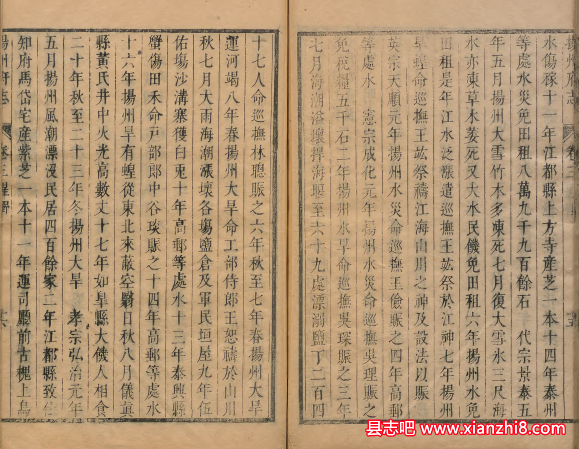 水傷稼十一年江都縣上方寺産芝一本十四年泰州
等處水災免田租八萬九千九百餘石 代宗景泰五
年五月揚州大雪竹木多凍死七月復大雪冰三尺海
水亦凍草木萎死又大水民饑免田租六年揚州水免
田租是年江水泛漲遣巡撫王竑祭於江神七年揚州
旱蝗命巡撫王竑祭禱江海山川之神及設法以賑
英宗天順元年揚州水災命巡撫王儉賑之四年高郵
等處水 憲宗成化元年揚州水災命巡撫吳理賑之
免秔糧五千石二年揚州水旱命巡撫吳琛賑之三年
七月海潮溢壞捍海堰至六十九處漂溺鹽丁二百四
揚州府志 卷三
十七人命巡撫林聰賑之六年秋至七年春揚州大旱
運河竭八年春揚州大旱命工部侍郎王恕禱於山川
秋七月大雨海潮漲壞各場鹽倉及軍民垣屋九年伍
佑場沙溝寨獲白兎十年高郵等處水十三年泰興縣
蟹傷田禾命戶部郎中谷琰賑之十四年高郵等處水
十六年揚州旱有蝗從東北來蔽空翳日秋八月儀眞
縣黃氏井中火光高數丈十七年如皐縣大饑人相食
二十年秋至二十三年冬揚州大旱 孝宗弘治元年
五月揚州風潮漂没民居四百餘家二年江都縣致仕
知府馬岱宅産紫芝一本十一年運司廳前古槐上烏
揚州府志 卷三
县志吧 www.xianzhi8.com
县志吧 www.xianzhi8.com